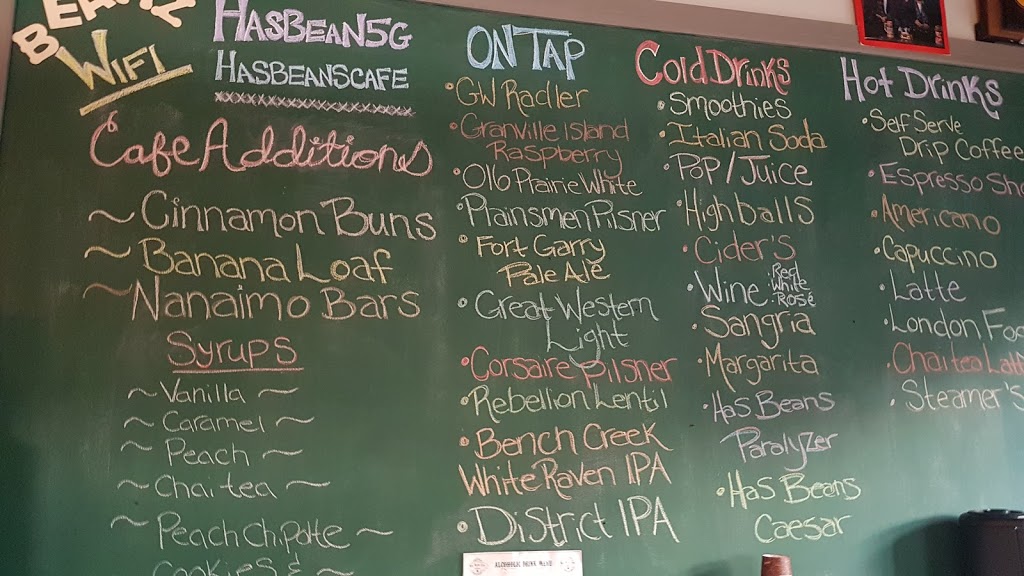 BEANZ
WIFI
HASBEAN5G
HASBEANSCAFE
Cafe Additions
~ Cinnamon Buns
~ Banana Loaf
~ Nanaimo Bars
Syrups
~ Vanilla ~
~ Caramel ~
~ Peach ~
~ Chai tea ~
~ Peach Chipotle ~
Cookies & ~
ON TAP
• GW Radler
• Granville Island
Raspberry
• Ol6 Prairie White
• Plainsmen Pilsner
• Fort Garry
Pale Ale
• Great Western
Light
• Corsaire Pilsner
• Rebellion Lentil
• Bench Creek
White Raven IPA
• District IPA
ALCOHOLIC DRINK
Cold Drinks
• Smoothies
• Italian Soda
• Pop / Juice
• Highballs
• Cider's
• Wine • Red
• White
• Rosé
• Sangria
• Margarita
• Has Beans
Paralyzer
• Has Beans
Caesar
Hot Drinks
• Self Serve
Drip Coffee
• Espresso Sho
• Americano
• Capuccino
• Latte
• London Fog
• Chai tea Latt
• Steamer's